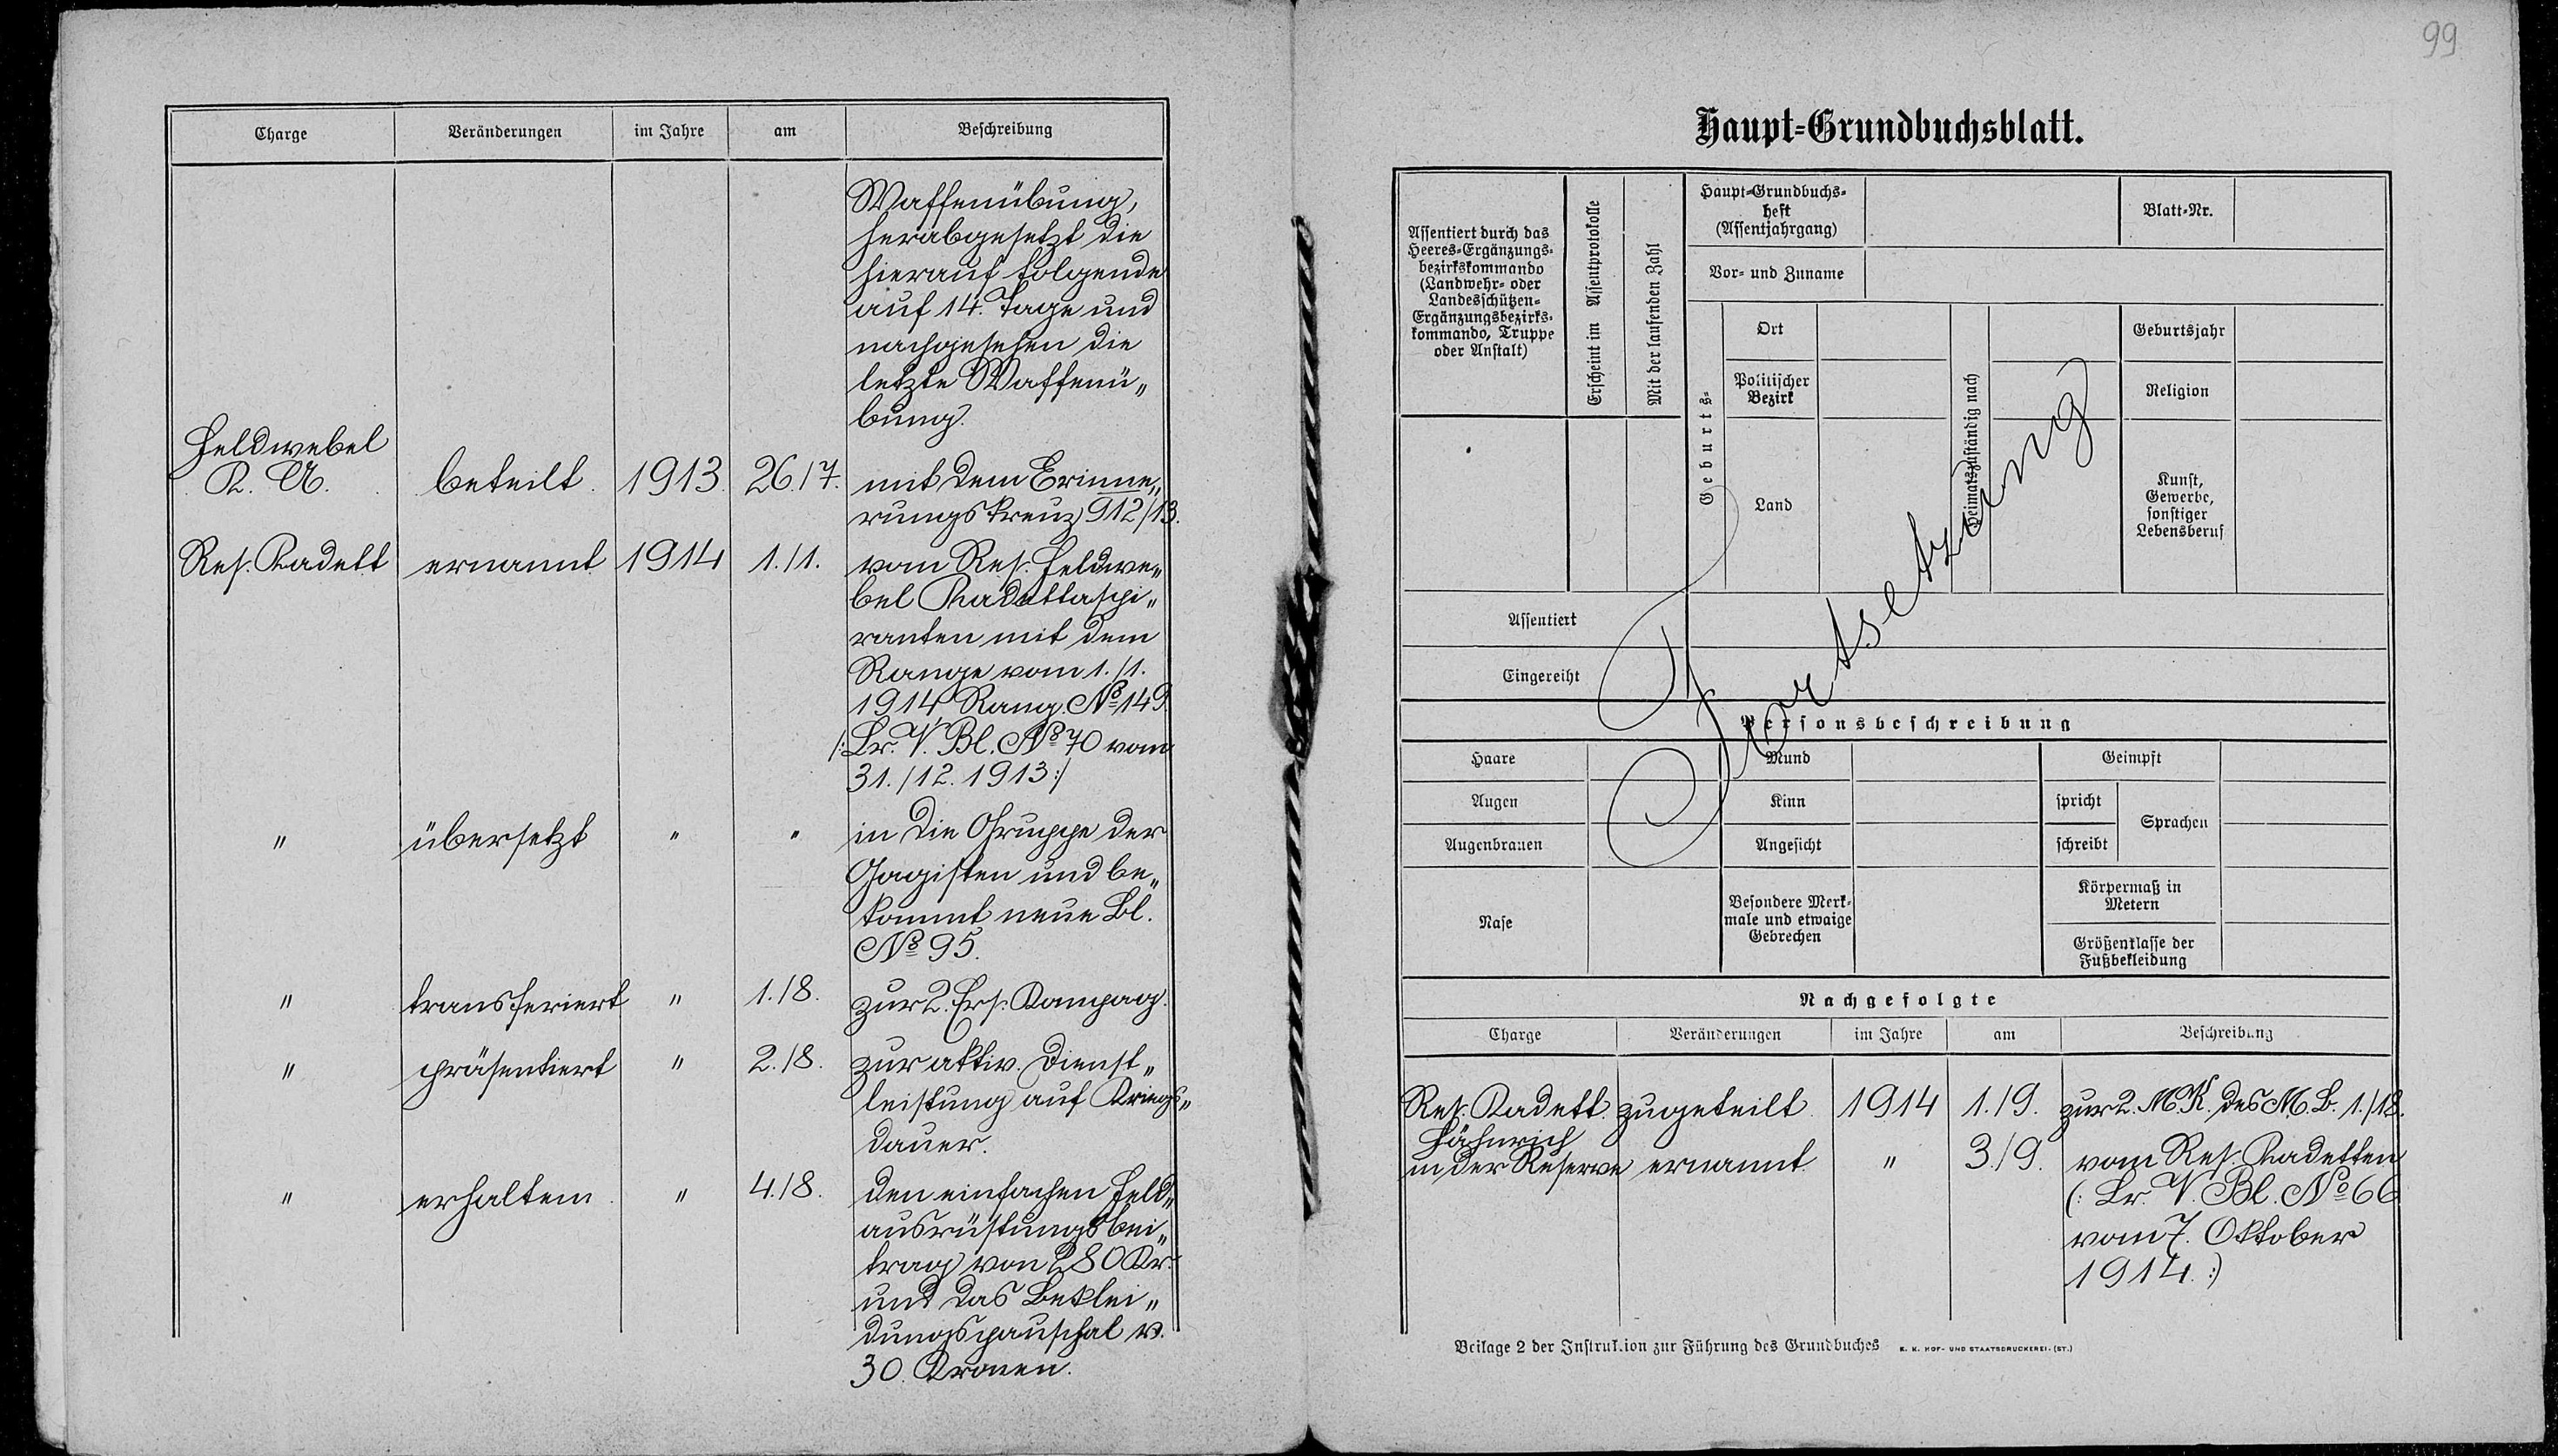 99
Charge Veränderungen im Jahre am Beschreibung
Waffenübung,
herabgesetzt die
hierauf folgende
auf 14. Tage und
nachgesehen die
letzte Waffenü„
bung.
Feldwebel
K. A. beteilt. 1913. 26./7. mit dem Erinne„
rungskreuz 912/13.
Res. Kadett ernannt 1914 1./1. vom Res. Feldwe„
bel Kadettaspi„
ranten mit dem
Range vom 1./1.
1914 Rang. No 149.
/:Lr. V. Bl. No 70 vom
31./12. 1913:/
" übersetzt " " in die Gruppe der
Gagisten und be„
kommt neue Bl.
No 95.
" transferiert " 1./8. zur 2. Ers. Kompag.
" präsentiert " 2./8. zur aktiv. Dienst„
leistung auf Kriegs„
dauer.
" erhalten " 4./8. den einfachen Feld„
ausrüstungsbei„
trag von 280 Kr.
und das Beklei„
dungspauschal v.
30. Kronen.
Haupt-Grundbuchsblatt.
Assentiert durch das
Heeres-Ergänzungs-
bezirkskommando
(Landwehr- oder
Landesschützen-
Ergänzungsbezirks-
kommando, Truppe
oder Anstalt)
Erscheint im Assentprotokolle
Mit der laufenden Zahl
Haupt-Grundbuchs-
heft
(Assentjahrgang)
Blatt-Nr.
Vor- und Zuname
Geburts-
Ort
Politischer
Bezirk
Land
Heimatszuständig nach
Geburtsjahr
Religion
Kunst,
Gewerbe,
sonstiger
Lebensberuf
Fortsetzung
Assentiert
Eingereiht
Personsbeschreibung
Haare Mund Geimpft
Augen Kinn spricht
Sprachen
Augenbrauen Angesicht schreibt
Nase
Besondere Merk-
male und etwaige
Gebrechen
Körpermaß in
Metern
Größenklasse der
Fußbekleidung
Nachgefolgte
Charge Veränderungen im Jahre am Beschreibung
Res. Kadett. zugeteilt. 1914 1./9. zur 2. M.K. des M. B. 1./18.
Fähnrich
in der Reserve ernannt " 3./9. vom Res. Kadetten
(: Lr. V. Bl. No 66
vom 7. Oktober
1914. :)
Beilage 2 der Instruktion zur Führung des Grundbuches K. K. HOF- UND STAATSDRUCKEREI. (ST.)